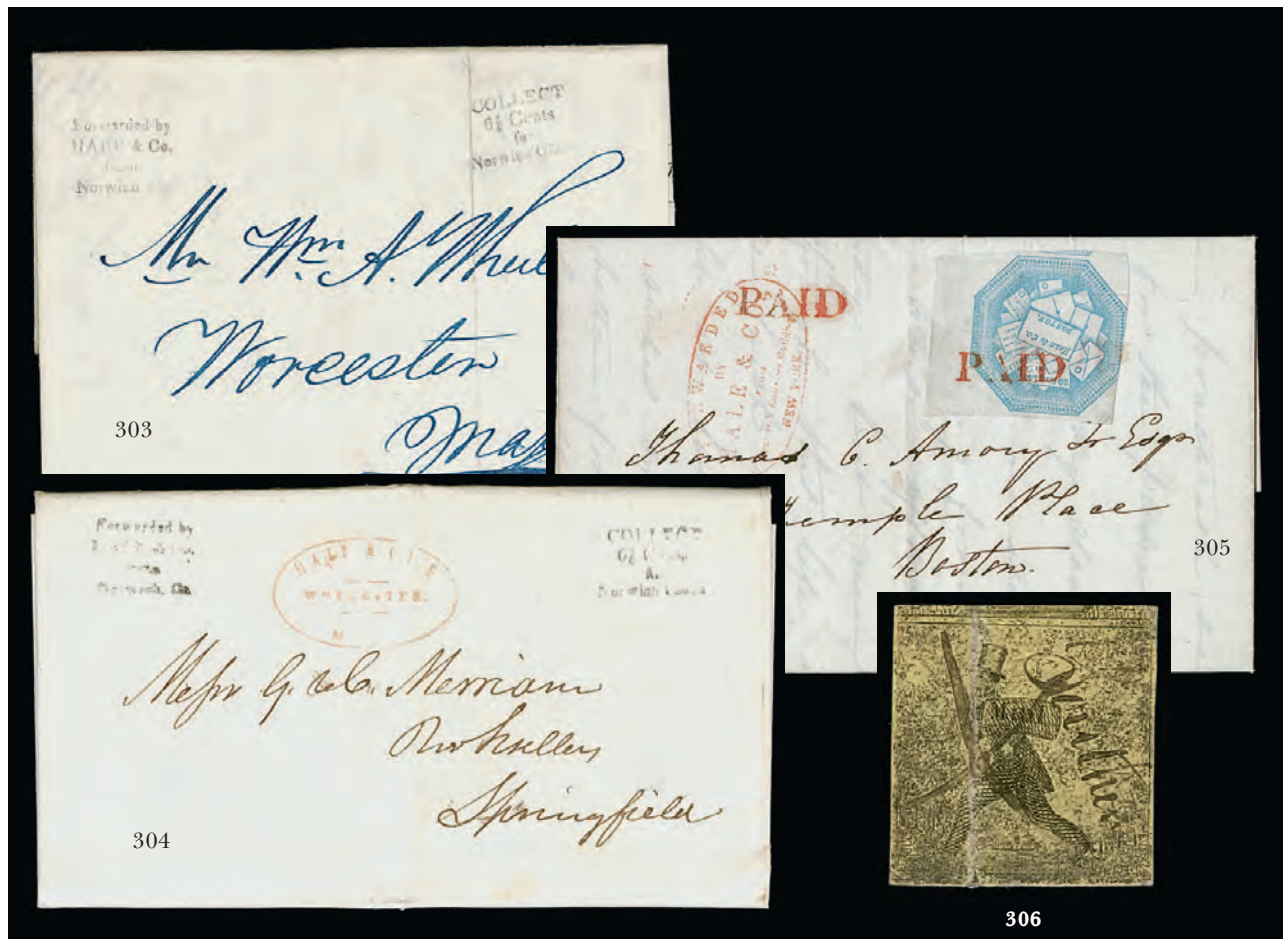 Forwarded by
& Co.
from
Norwich
COLLECT
6¼ Cents
for
Norwich
Mr Wm A.
Worcester
Mass
303
PAID
FORWARDED
BY
HALE & CO.
FROM
NEW YORK.
HALE & CO.
BOSTON.
PAID
Thomas C. Amory Jr Esqr
Temple Place
Boston.
305
Forwarded by
from
Norwich,
HALE & CO'S
WORCESTER.
COLLECT
6¼
Norwich
Messr G. & C. Merriam
Booksellers
Springfield
304
306